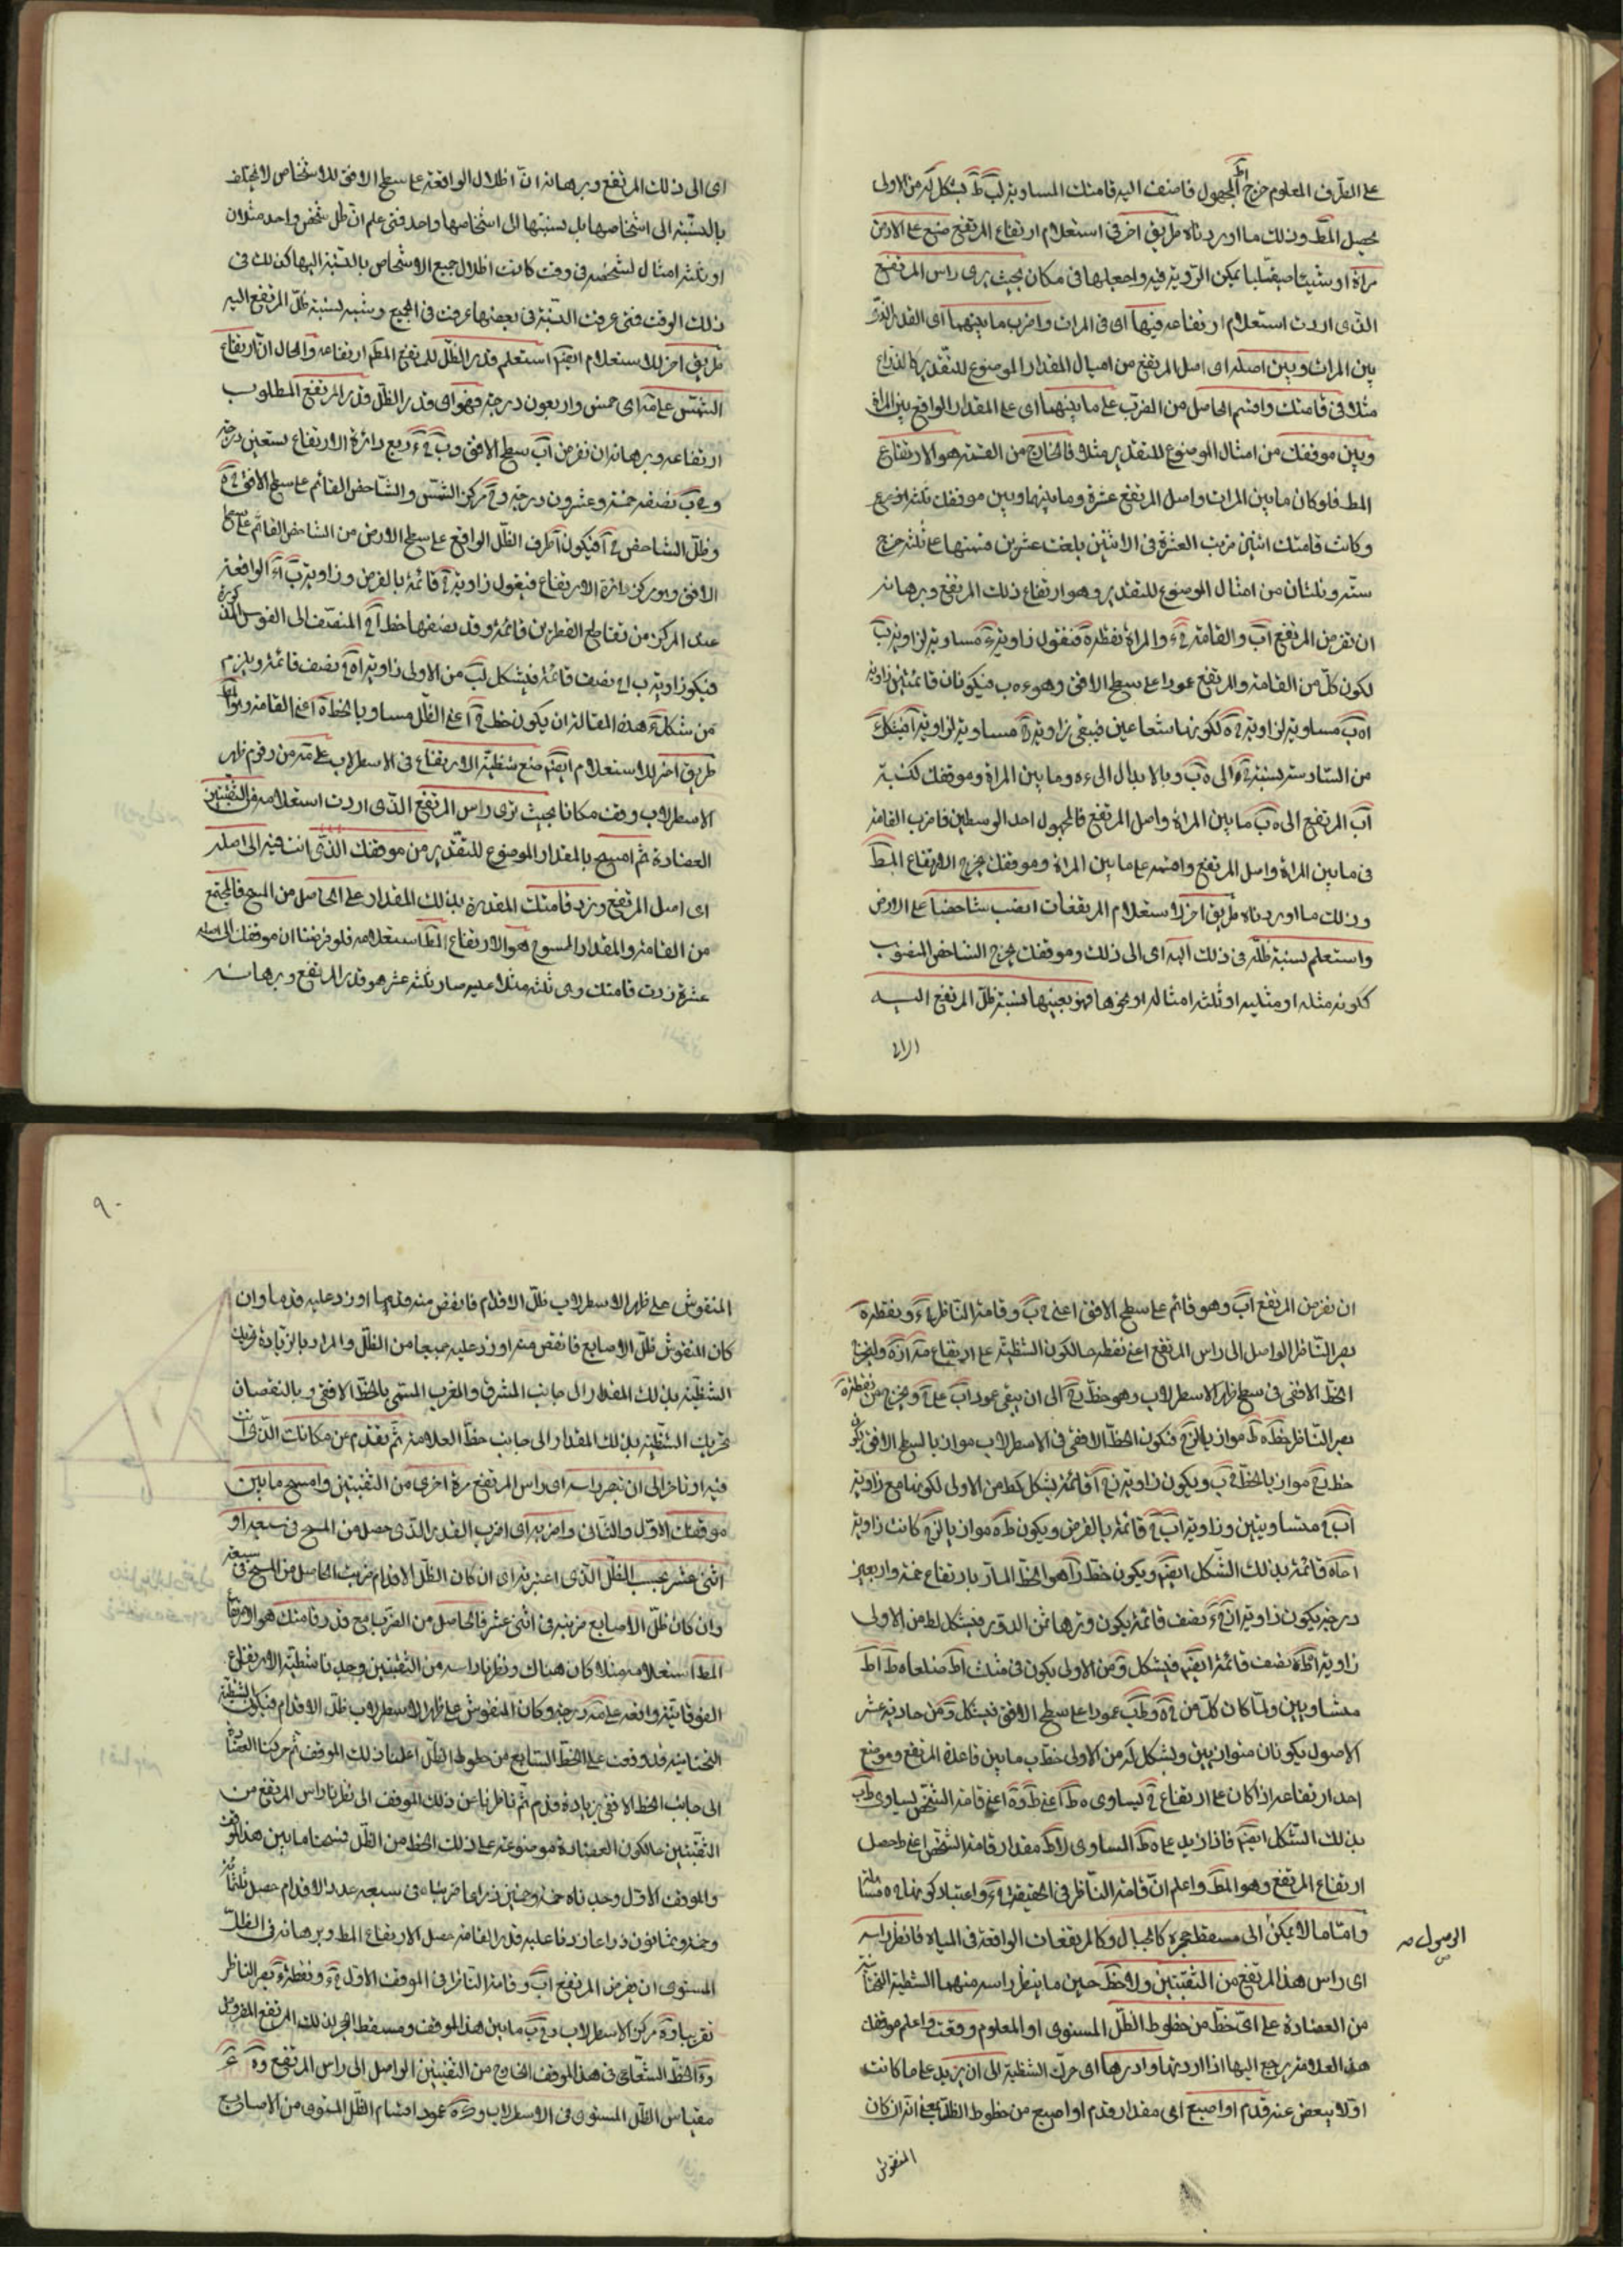 على الطرف المعلوم خرج اط المجهول فاضف اليه قامتك المساوية لب ط بشكل لد من الاولى
يحصل المط وذلك ما اوردناه طريق اخر فى استعلام ارتفاع المرتفع ضع على الارض
مرآة او شيئا صيقليا يمكن الرؤية فيه واجعلها فى مكان بحيث يرى راس المرتفع
الذى اردت استعلام ارتفاعه فيها اى فى المرات واضرب ما بينهما اى القدر الذى
بين المرات وبين اصله اى اصل المرتفع من امثال المقدار الموضوع للتقدير كالذراع
مثلا فى قامتك واقسم الحاصل من الضرب على ما بينهما اى على المقدار الواقع بين المراة
وبين موقفك من امثال الموضوع للتقدير مثلا فالخارج من القسمة هو الارتفاع
المط فلو كان ما بين المرات واصل المرتفع عشرة وما بينها وبين موقفك ثلثة اذرع
وكانت قامتك اثنين ضربت العشرة فى الاثنين بلغت عشرين قسمتها على ثلثة خرج
ستة وثلثان من امثال الموضوع للتقدير وهو ارتفاع ذلك المرتفع وبرهانه
ان نفرض المرتفع اب والقامة ح ء والمراة نقطة ه فنقول زاوية ء مساوية لزاوية ب
لكون كل من القامة والمرتفع عمودا على سطح الافق وهو ء ه ب فيكونان قائمتين وزاوية
ا ه ب مساوية لزاوية ح ه ء لكونهما شعاعين فيبقى زاوية ح مساوية لزاوية ا فبشكل ء
من السادسة نسبة ح ء الى ه ب وبالابدال الى ء ه وما بين المراة وموقفك كنسبة
اب المرتفع الى ه ب ما بين المراة واصل المرتفع فالمجهول احد الوسطين فاضرب القامة
فى ما بين المراة واصل المرتفع واقسمه على ما بين المراة وموقفك يخرج الارتفاع المط
وذلك ما اوردناه طريق اخر لاستعلام المرتفعات انصب شاخصا على الارض
واستعلم نسبة ظله فى ذلك اليه اى الى ذلك وموقفك يخرج الشاخص المنصوب
ككونه مثله او مثليه او ثلثة امثاله او نحوها فهو بعينها نسبة ظل المرتفع اليه
اى الى
اى الى ذلك المرتفع وبرهانه ان اظلال الواقعة على سطح الافق للاشخاص لا يختلف
بالنسبة الى اشخاصها بل نسبتها الى اشخاصها واحد فمتى علم ان ظل شخص واحد مثلان
او ثلثة امثال لشخصه فى وقت كانت اظلال جميع الاشخاص بالنسبة اليها كذلك فى
ذلك الوقت فمتى عرفت النسبة فى بعضها عرفت فى الجميع ونسبة ظل المرتفع اليه
طريق اخر للاستعلام ايضا استعلم قدر الظل للمرتفع المط ارتفاعه والحال ان ارتفاع
الشمس على مه اى خمس واربعون درجة فهو اى قدر الظل قدر المرتفع المطلوب
ارتفاعه وبرهانه ان نفرض اب سطح الافق وب ح ء ربع دائرة الارتفاع تسعين درجة
وح ب نصفه خمسة وعشرون درجة و ح مركز الشمس والشاخص القائم على سطح الافق ح ه
وظل الشاخص ه ا فيكون ا طرف الظل الواقع على سطح الارض من الشاخص القائم على سطح
الافق وهو مركز دائرة الارتفاع فنقول زاوية ه قائمة بالفرض وزاوية ب ا ء الواقعة
عند المركز من تقاطع القطرين قائمة وقد نصفها خط ا ح المنصف الى القوس المذكورة
فيكون زاوية ب ا ح نصف قائمة فبشكل لب من الاولى زاوية ا ه ح نصف قائمة ويلزم
من شكل ء هذه المقالة ان يكون خط ه ا اعنى الظل مساويا لخط ه ح اعنى القامة وهو المط
طريق اخر للاستعلام ايضا ضع شظية الارتفاع فى الاسطرلاب على مه من رقوم ظهر
الاسطرلاب وقف مكانا بحيث ترى راس المرتفع الذى اردت استعلامه من الثقبتين
العضادة ثم امسح بالمقدار الموضوع للتقدير من موقفك الذى انت فيه الى اصله
اى اصل المرتفع وزد قامتك المقدرة بذلك المقدار على الحاصل من المسح فالمجتمع
من القامة والمقدار المسوح هو الارتفاع المط استعلامه فلو فرضنا ان موقفك الى اصله
عشرة زدت قامتك وهى ثلثة مثلا عليه صار ثلثة عشر هو قدر المرتفع وبرهانه
ان نفرض المرتفع اب وهو قائم على سطح الافق اعنى ح ب وقامة الناظر ح ء ونقطة ه
بصر الناظر الواصل الى راس المرتفع اعنى نقطة حالكون الشظية على ارتفاع مه ا ز ه وليخرج
الخط الافقى فى سطح ظهر الاسطرلاب وهو خط ح الى ان يبقى عمود اب على ح ويخرج من نقطة ه
بصر الناظر خط ه ط مواز يا لزح فيكون الخط الافقى فى الاسطرلاب موازيا لسطح الافق يكون
خط ز ح موازيا لخط ح ب ويكون زاوية ز ح ا قائمة بشكل كط من الاولى لكونها مع زاوية
اب ح متساويتين وزاوية اب ح قائمة بالفرض ويكون ط ه موازيا لزح كانت زاوية
ا ط ه قائمة بذلك الشكل ايضا ويكون خط ز ا هو الخط المار بارتفاع خمسة واربعين
درجة يكون زاوية ا ز ح نصف قائمة يكون وترها ثمن الدور فبشكل لط من الاولى
زاوية ا ط ه نصف قائمة ايضا فبشكل و من الاولى يكون فى مثلث اط ه ضلعا ه ط اط
متساويين ولما كان كل من ح ه وط ب عمودا على سطح الافق فبشكل و من حادية عشر
الاصول يكونان متوازيين وبشكل لد من الاولى خط ح ب ما بين قاعدة المرتفع وموضع
اخذ ارتفاعه اذا كان على ارتفاع مه يساوى ه ط اعنى ط ا وح ه اعنى قامة الشخص يساوى ط ب
بذلك الشكل ايضا فاذا زيد على ه ط المساوى لاط مقدار قامة الشخص اعنى ط ب حصل
ارتفاع المرتفع وهو المط واعلم ان قامة الناظر فى الحقيقة ح ء واعتبار كونها ح ه مسامحة
واما ما لا يمكن الى مسقط حجره كالجبال وكالمرتفعات الواقعة فى المياه فانظر راسه
الوصول صح
اى راس هذا المرتفع من الثقبتين ولاحظ حين ما ينظر راسه منهما الشظية التحتانية
من العضادة على اى خط من خطوط الظل المستوى او المعلوم وقعت واعلم موقفك
هذا لعلامة يرجع اليها اذا اردتها وادرها اى حرك الشظية الى ان يزيد على ما كانت
اولا او ينقص عنه قدم او اصبع اى مقدار قدم او اصبع من خطوط الظل يعنى انه ان كان
المنقوش
٩٠
المنقوش على ظهر الاسطرلاب ظل الاقدام فانقص منه قدما او زد عليه قدما وان
كان المنقوش ظل الاصابع فانقص منه او زد عليه اصبعا من الظل والمراد بالزيادة تحريك
الشظية بذلك المقدار الى جانب المشرق والمغرب المسمى بالخط الافقى وبالنقصان
تحريك الشظية بذلك المقدار الى جانب خط العلامة ثم تقدم عن مكانك الذى انت
فيه او تاخر الى ان تبصر راسه اى راس المرتفع مرة اخرى من الثقبتين وامسح ما بين
موقفك الاول والثانى واضربه اى اضرب القدر الذى حصل من المسح فى سبعة او
اثنى عشر بحسب الظل الذى اعتبرته اى ان كان الظل الاقدام ضربت الحاصل من المسح فى سبعة
وان كان ظل الاصابع ضربته فى اثنى عشر فالحاصل من الضرب مع قدر قامتك هو الارتفاع
المط استعلامه مثلا كان هناك ونظرنا راسه من الثقبتين وجدنا شظية الارتفاع
الفوقانية واقعة على مه درجة وكان المنقوش على ظهر الاسطرلاب ظل الاقدام فيكون الشظية
التحتانية قد وقعت على الخط السابع من خطوط الظل اعلمنا ذلك الموقف ثم حركنا العضادة
الى جانب الخط الافقى بزيادة قدم ثم تاخرنا عن ذلك الموقف الى نظرنا راس المرتفع من
الثقبتين حالكون العضادة موضوعة على ذلك الخط من الظل فمسحنا ما بين هذا الموقف
والموقف الاول وجدناه خمسة وخمسين ذراعا ضربناه فى سبعة عدد الاقدام حصل ثلثمائة
وخمسة وثمانون ذراعا زدنا عليه قدر القامة حصل الارتفاع المط وبرهانه فى الظل
المستوى ان نفرض المرتفع اب وقامة الناظر فى الموقف الاول ح ء ونقطة ء بصر الناظر
تقريبا و ه مركز الاسطرلاب و ح ب ما بين هذا الموقف ومسقط الحجر لذلك المرتفع المفروض
و ه ا الخط الشعاعى فى هذا الموقف الخارج من الثقبتين الواصل الى راس المرتفع و ه ع
مقياس الظل المستوى فى الاسطرلاب و ه عمود اقسام الظل المستوى من الاصابع